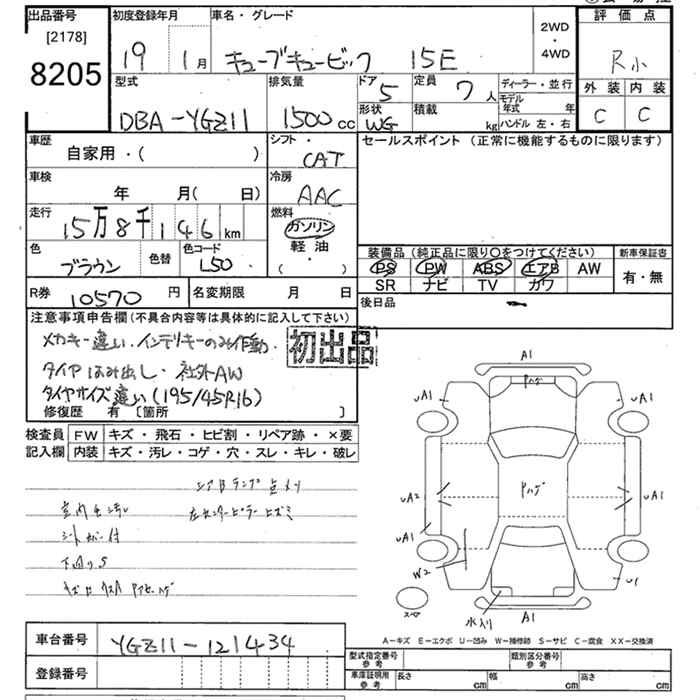 出品番号
[2178]
8205
初度登録年月
19 1月
車名・グレード
キューブキュービック 15E
2WD
・
4WD
評価点
R小
外装 内装
C C
型式
DBA-YGZ11
排気量
1500cc
ドア 5
定員 7人
形状 WG
積載 kg
ディーラー・並行
モデル年式 年
ハンドル 左・右
車歴
自家用・( )
シフト・
CAT
セールスポイント (正常に機能するものに限ります)
車検
年 月(日)
冷房
AAC
走行
15万8千146km
燃料
ガソリン
軽油
( ・ )
色
ブラウン
色替
色コード
L50
装備品 (純正品に限り○をつけてください)
PS PW ABS エアB AW
SR ナビ TV カワ
新車保証書
有・無
R券 10570円
名変期限 月 日
後日品
注意事項申告欄(不具合内容等は具体的に記入して下さい)
メカキー違い.インテリキーのみ作動
タイヤはみ出し.社外AW
タイヤサイズ違い(195/45R16)
初出品
修復歴 有 [箇所 ]
検査員記入欄
FW キズ・飛石・ヒビ割・リペア跡・×要
内装 キズ・汚レ・コゲ・穴・スレ・キレ・破レ
シアBランプ点メツ
左センターピラーヒズミ
シートカバー付
下回りS
A1
Pハゲ
uA1
uA1
Pハゲ
uA2
uA2
uA1
W2
u1
スペア
水入り
A1
A-キズ E-エクボ U-凹み W-補修跡 S-サビ C-腐食 XX-交換済
車台番号
YGZ11-121434
登録番号
型式指定番号 参考
類別区分番号 参考
車庫証明用 参考
長さ cm
幅 cm
高さ cm